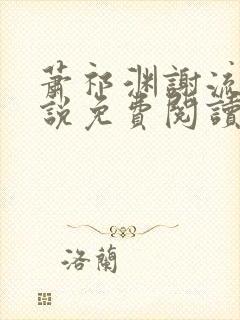 蕭祁渊謝流
說免費閱讀
洛蘭